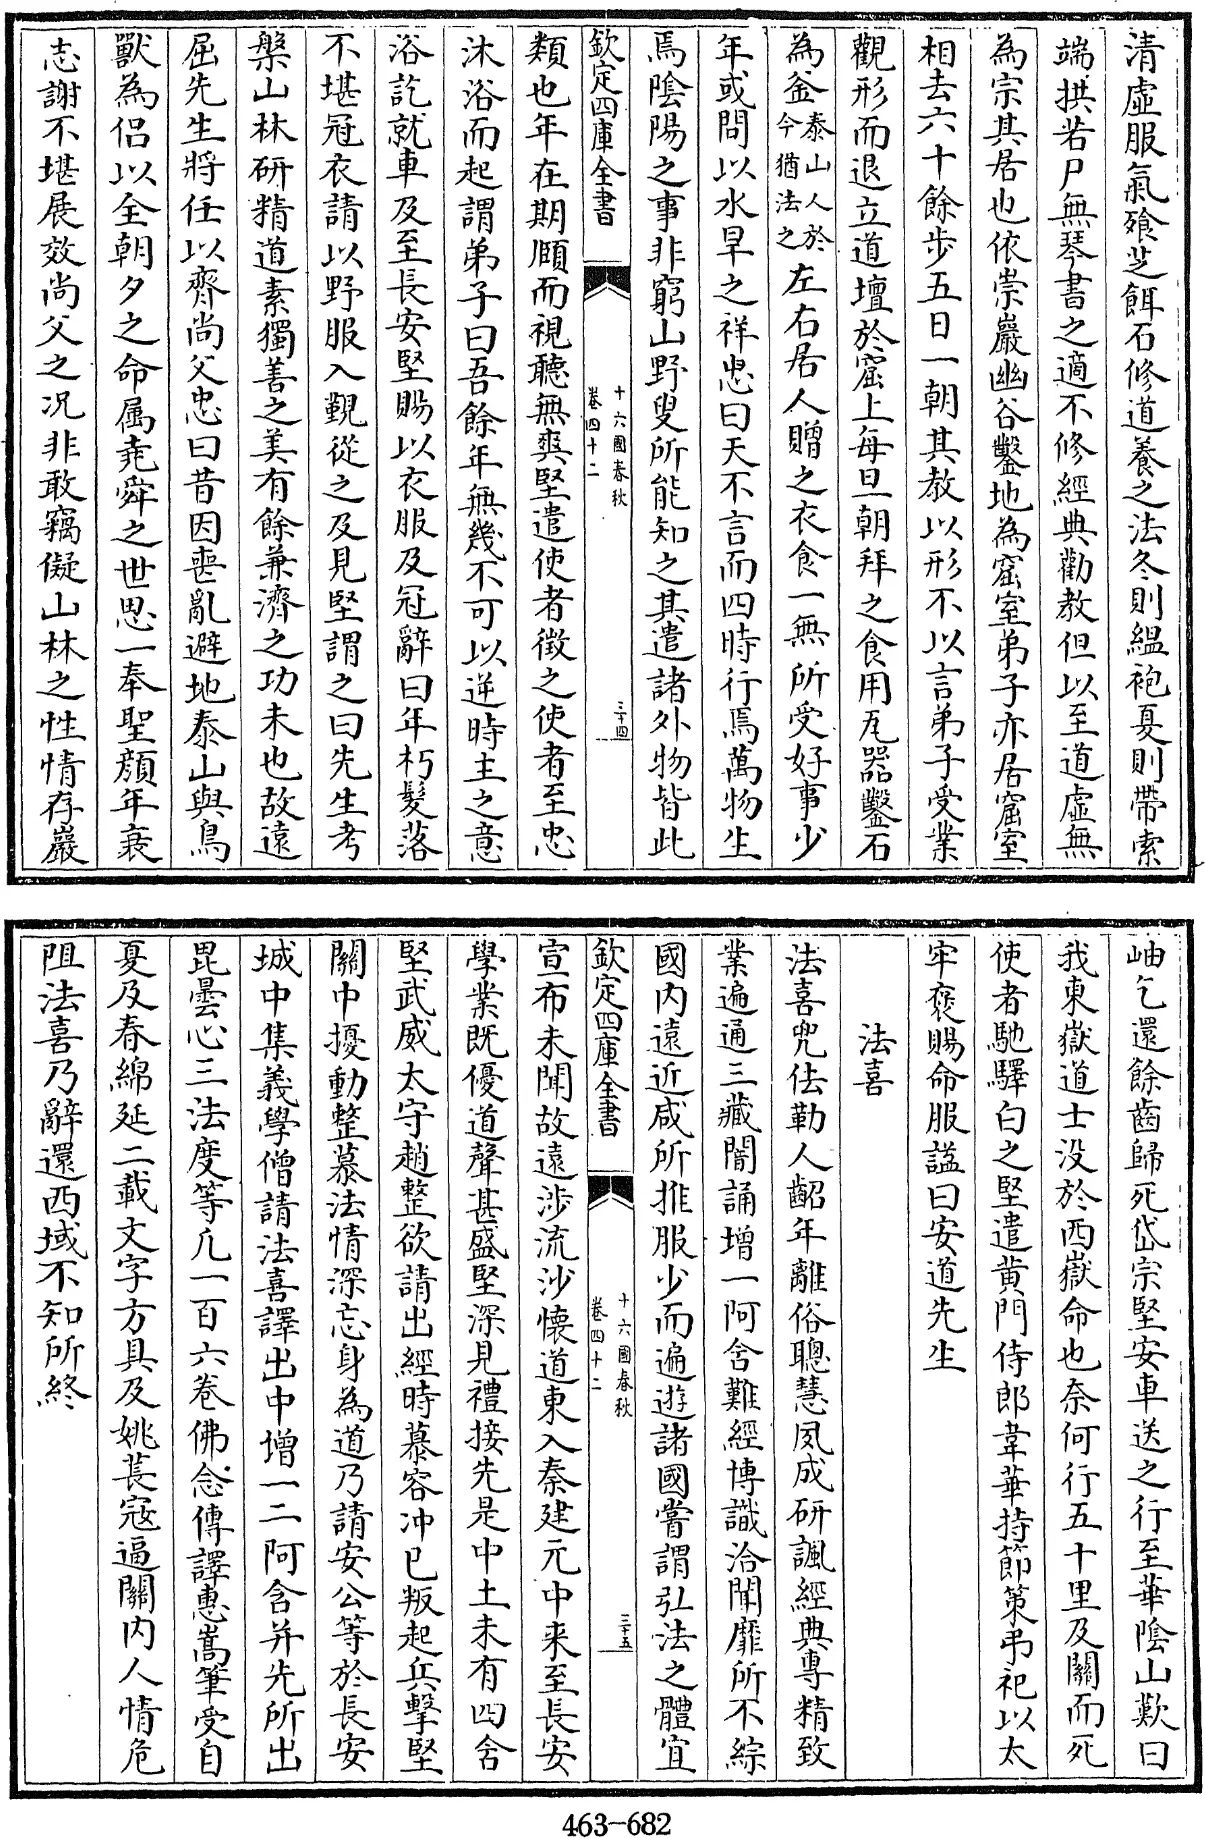 清虛服氣飱芝餌石修道養之法冬則縕袍夏則帶索
端拱若尸無琴書之適不修經典勸教但以至道虛無
為宗其居也依崇巖幽谷鑿地為窟室弟子亦居窟室
相去六十餘步五日一朝其教以形不以言弟子受業
觀形而退立道壇於窟上每旦朝拜之食用瓦器鑿石
為釜泰山人於今猶法之左右居人贈之衣食一無所受好事少
年或問以水旱之祥忠曰天不言而四時行焉萬物生
焉陰陽之事非窮山野叟所能知之其遣諸外物皆此
欽定四庫全書
十六國春秋
卷四十二
三十四
類也年在期頤而視聽無爽堅遣使者徵之使者至忠
沐浴而起謂弟子曰吾餘年無幾不可以逆時主之意
浴訖就車及至長安堅賜以衣服及冠辭曰年朽髮落
不堪冠衣請以野服入覲從之及見堅謂之曰先生考
槃山林研精道素獨善之美有餘兼濟之功未也故遠
屈先生將任以齊尚父忠曰昔因喪亂避地泰山與鳥
獸為侶以全朝夕之命屬堯舜之世思一奉聖顏年衰
志謝不堪展效尚父之况非敢竊儗山林之性情存巖
岫乞還餘齒歸死岱宗堅安車送之行至華陰山歎曰
我東嶽道士没於西嶽命也奈何行五十里及關而死
使者馳驛白之堅遣黄門侍郎韋華持節策弔祀以太
牢褒賜命服諡曰安道先生
法喜
法喜兜佉勒人齠年離俗聰慧夙成研諷經典專精致
業遍通三藏闇誦增一阿含難經博識洽聞靡所不綜
國内遠近咸所推服少而遍遊諸國嘗謂弘法之體宜
欽定四庫全書
十六國春秋
卷四十二
三十五
宣布未聞故遠涉流沙懷道東入秦建元中來至長安
學業既優道聲甚盛堅深見禮接先是中土未有四含
堅武威太守趙整欲請出經時慕容冲已叛起兵擊堅
關中擾動整慕法情深忘身為道乃請安公等於長安
城中集義學僧請法喜譯出中增一二阿含并先所出
毘曇心三法度等凡一百六卷佛念傳譯惠嵩筆受自
夏及春綿延二載文字方具及姚萇寇逼關内人情危
阻法喜乃辭還西域不知所終
463-682